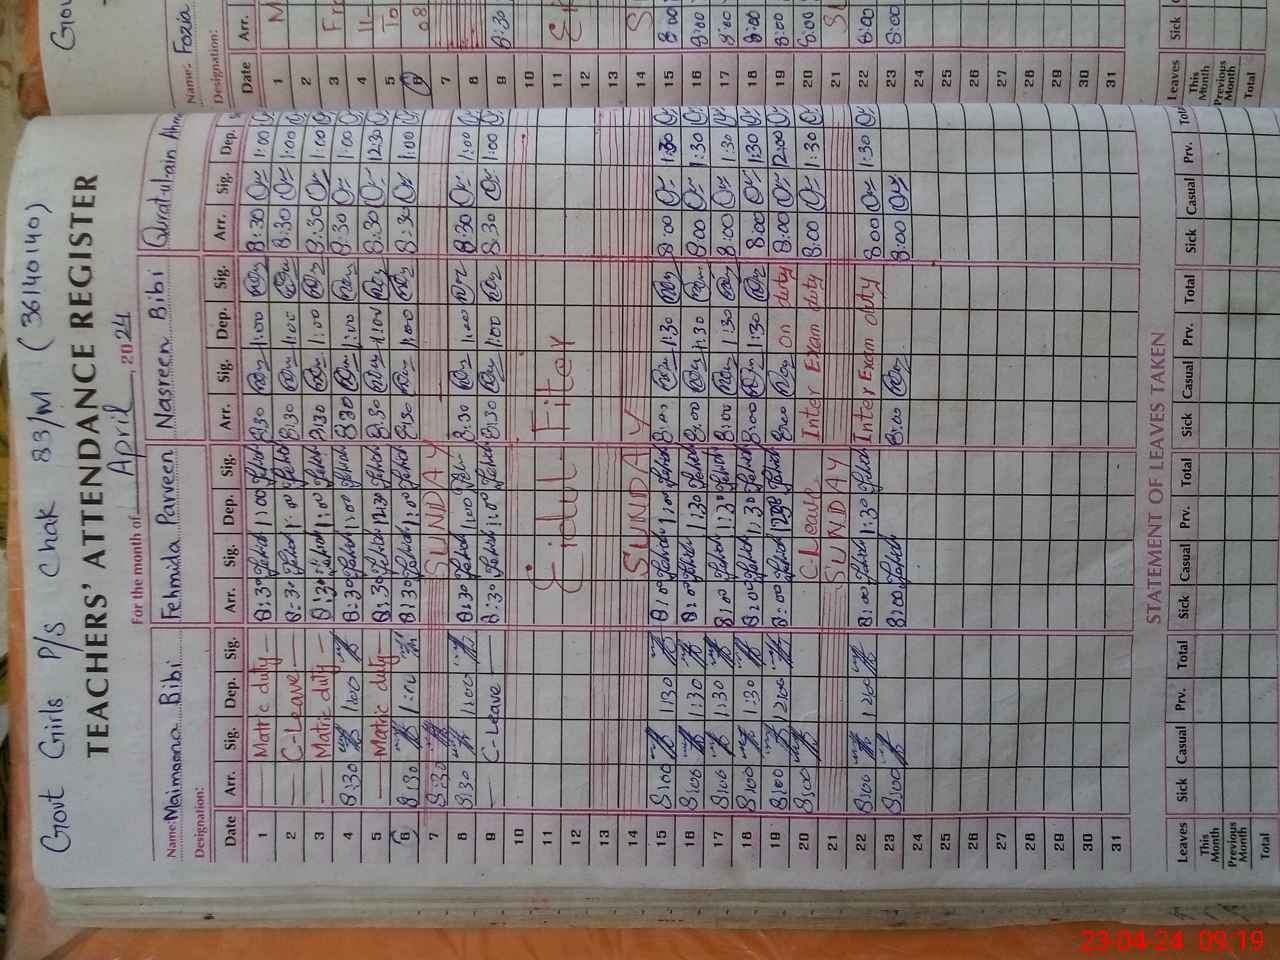 Govt Girls P/S Chak 83/M (36140140)
TEACHERS' ATTENDANCE REGISTER
For the month of April, 2024
Name: Maimoona Bibi Fehmida Parveen Nasreen Bibi Qurat-ul-ain
Designation:
Date Arr. Sig. Dep. Sig. Arr. Sig. Dep. Sig. Arr. Sig. Dep. Sig. Arr. Sig. Dep.
1 Matric duty 8:30 1:00 8:30 1:00 8:30 1:00
2 C-Leave 8:30 1:00 8:30 1:00 8:30 1:00
3 Matric duty 8:30 1:00 8:30 1:00 8:30 1:00
4 8:30 1:00 8:30 1:00 8:30 1:00 8:30 1:00
5 Matric duty 8:30 12:30 8:30 8:30 12:30
6 8:30 1:00 8:30 1:00 8:30 1:00 8:30 1:00
7 8:30 SUNDAY
8 8:30 1:00 8:30 1:00 8:30 1:00 8:30 1:00
9 C-Leave 8:30 1:00 8:30 1:00 8:30 1:00
10
11 Eidul-Fiter
12
13
14 SUNDAY
15 8:00 1:30 8:00 1:00 8:00 1:30 8:00 1:30
16 8:00 1:30 8:00 1:30 8:00 1:30 8:00 1:30
17 8:00 1:30 8:00 1:30 8:00 1:30 8:00 1:30
18 8:00 1:30 8:00 1:30 8:00 1:30 8:00 1:30
19 8:00 12:00 8:00 8:00 on duty 8:00 12:00
20 8:00 C-Leave Inter Exam duty 8:00 1:30
21 SUNDAY
22 8:00 8:00 1:30 Inter Exam duty 8:00 1:30
23 8:00 8:00 8:00 8:00
24
25
26
27
28
29
30
31
STATEMENT OF LEAVES TAKEN
Leaves Sick Casual Prv. Total Sick Casual Prv. Total Sick Casual Prv. Total Sick Casual Prv.
This Month
Previous Month
Total
Name: Fozia
Designation:
Date Arr.
1
2
3
4
5
6
7
8
9 8:30
10
11
12
13
14
15 8:00
16 8:00
17 8:00
18 8:00
19 8:00
20 8:00
21
22 8:00
23 8:00
24
25
26
27
28
29
30
31
Leaves Sick
This Month
Previous Month
Total
23-04-24 09:19